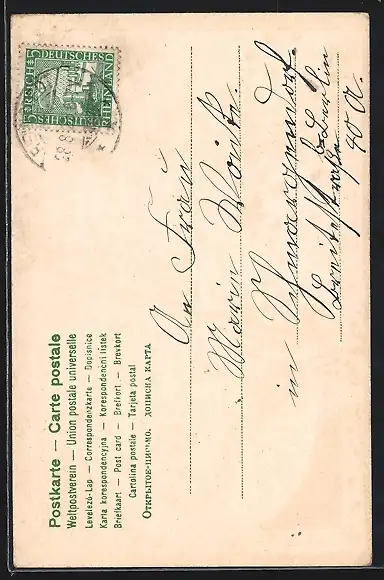 Postkarte — Carte postale
Weltpostverein — Union postale universelle
Levelezö-Lap — Correspondenzkarte — Dopisnice
Karta korespondencyjna — Korespondencni listek
Briefkaart — Post card — Brefkort — Brevkort
Cartolina postale — Tarjeta postal
Открытое-письмо. дописна карта
DEUTSCHES REICH
5 5
RHEINLAND
An Frau
Marie
in Schmargendorf
b Berlin
Breitestraße
40 A.